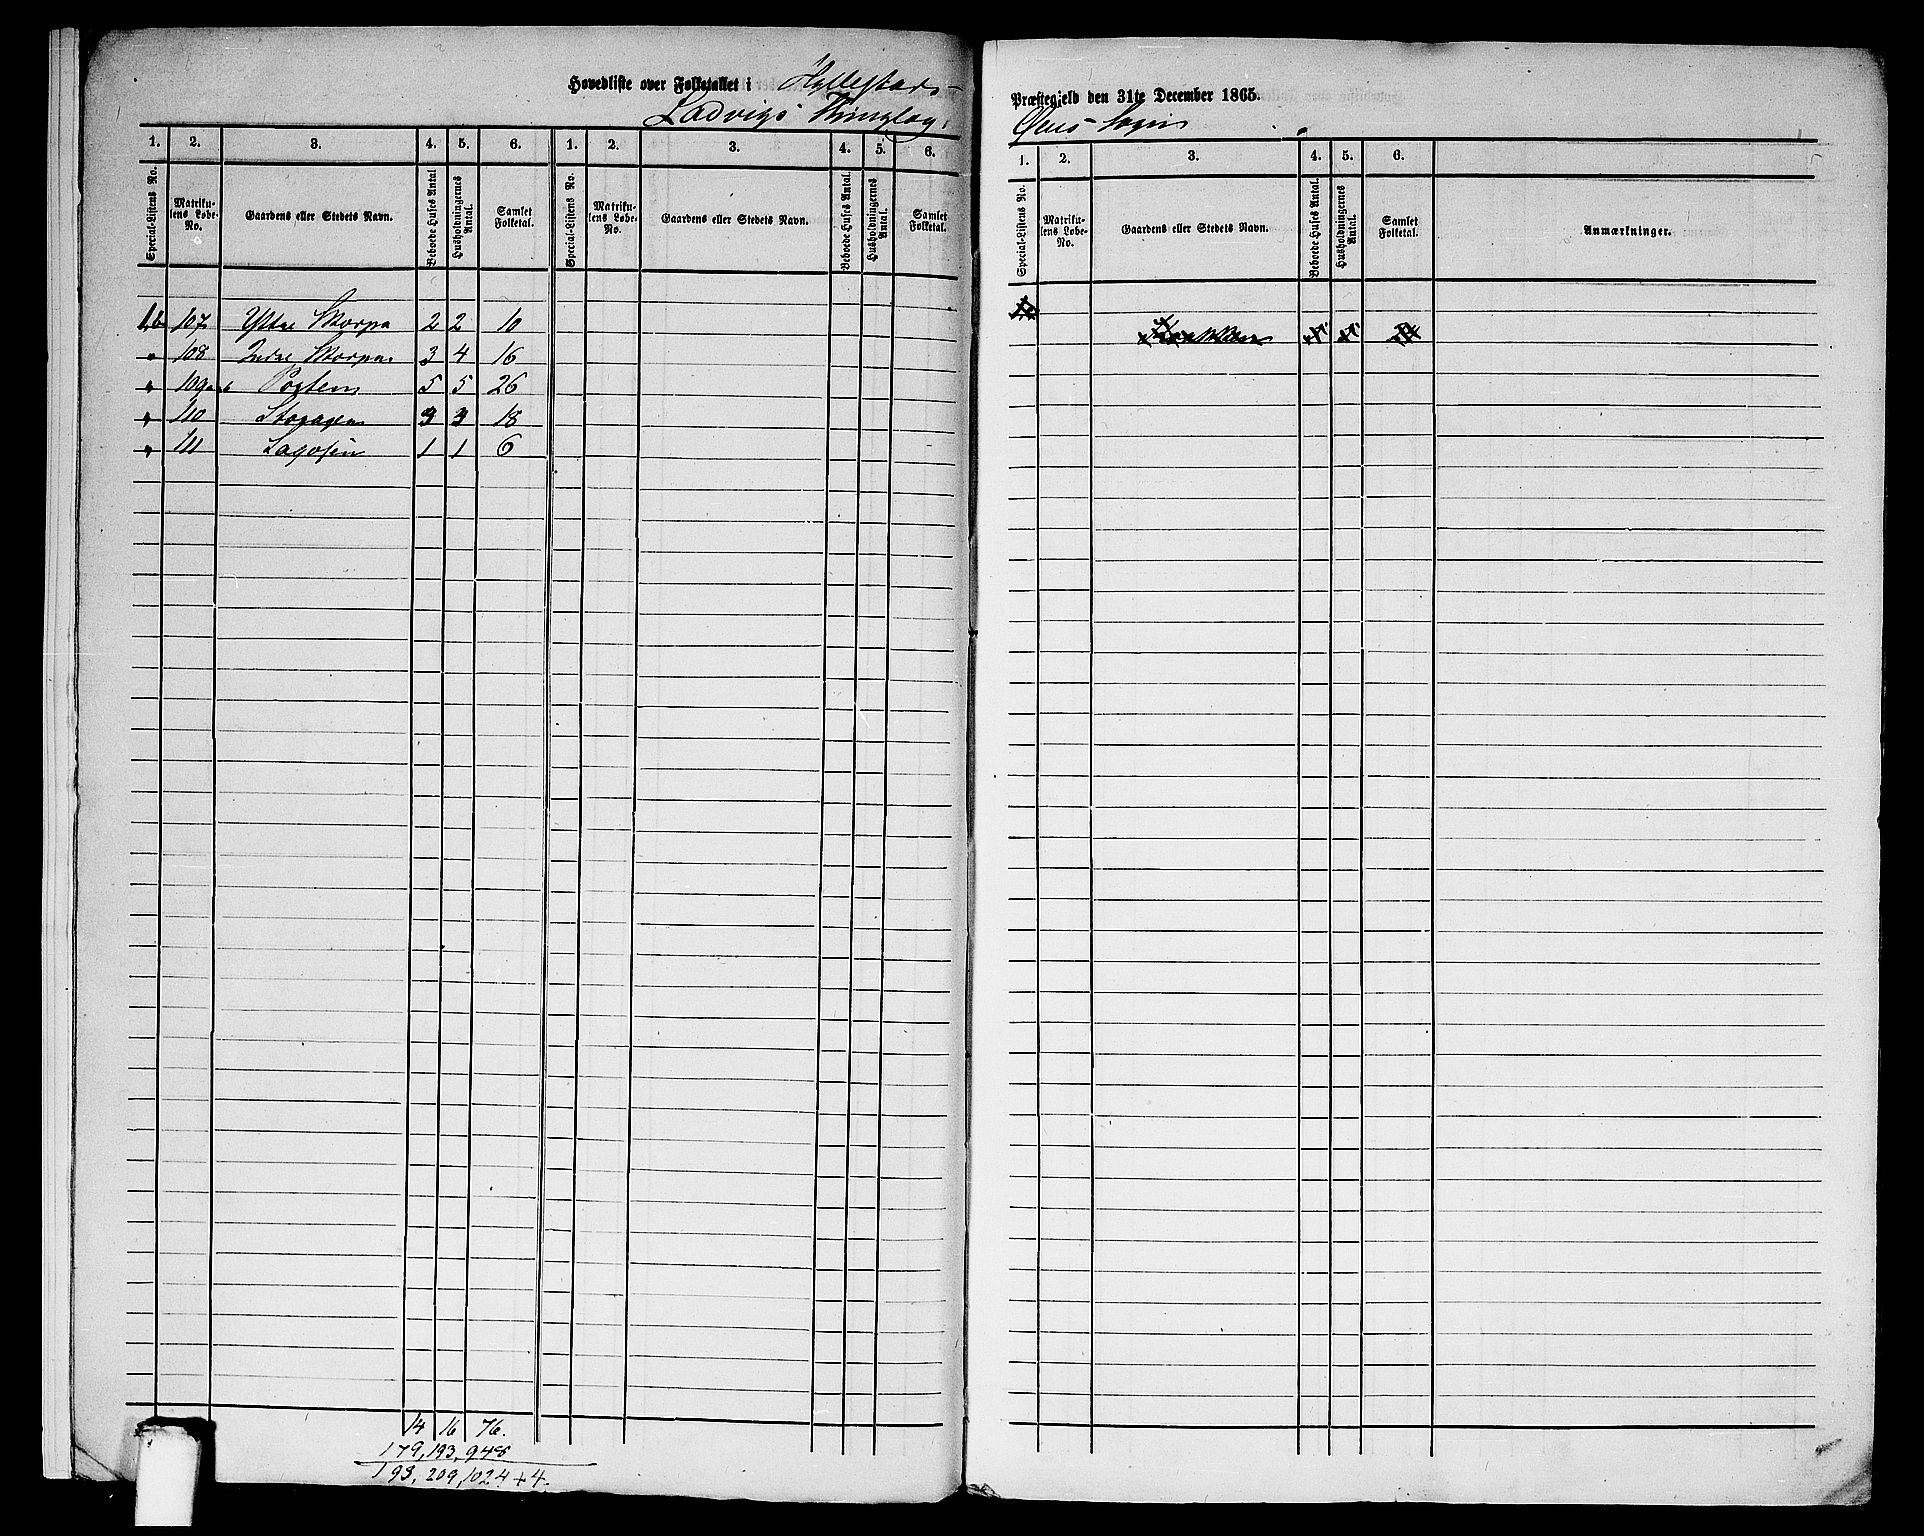 Hovedliste over Folketallet i Hyllestads-
Ladvigs Thinglag.
1. 2. 3. 4. 5. 6. 1. 2. 3. 4. 5. 6.
Special-Listens No. Matriku-lens Løbe-No. Gaardens eller Stedets Navn. Beboede Huses Antal Husholdningernes Antal. Samlet Folketal. Special-Listens No. Matriku-lens Løbe-No. Gaardens eller Stedets Navn. Beboede Huses Antal. Husholdningernes Antal. Samlet Folketal.
16 107 Yttre Skorpa 2 2 10
" 108 Indre Skorpa 3 4 16
" 109 Porten 5 5 26
" 110 18
" 111 1 1 6
14 16 76.
179, 193, 948
193, 209, 1024 + 4.
Præstegjeld den 31te December 1865.
Øens Sogn
1. 2. 3. 4. 5. 6.
Special-Listens No. Matriku-lens Løbe-No. Gaardens eller Stedets Navn. Beboede Huses Antal. Husholdningernes Antal. Samlet Folketal. Anmærkninger.